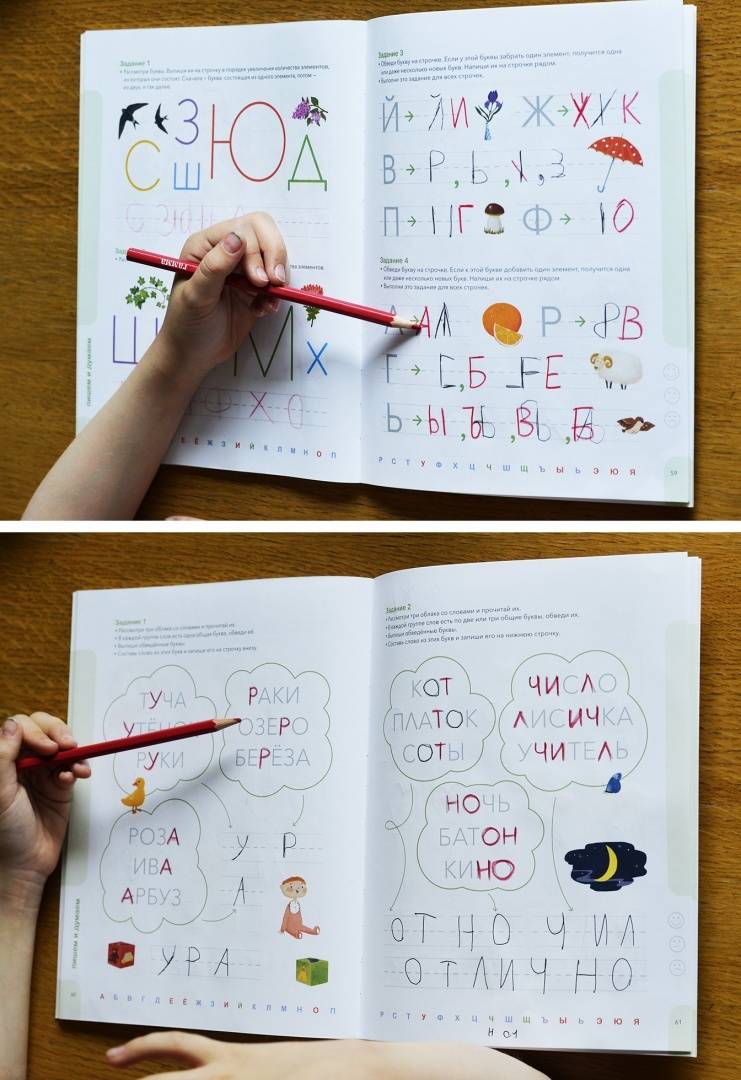 Задание 1
• Рассмотри буквы. Выпиши их на строчку в порядке увеличения количества элементов,
из которых они состоят. Сначала – буква, состоящая из одного элемента, потом –
из двух, и так далее.
С З Ю Ш Д
М Х
гамма
пишем и думаем
Е Ё Ж З И Й К Л М Н О П
Задание 3
• Обведи букву на строчке. Если у этой буквы забрать один элемент, получится одна
или даже несколько новых букв. Напиши их на строчке рядом.
• Выполни это задание для всех строчек.
Й → Л И Ж → Х К
В → Р, Ь, З
П → Г Ф → О
Задание 4
• Обведи букву на строчке. Если к этой букве добавить один элемент, получится одна
или даже несколько новых букв. Напиши их на строчке рядом.
• Выполни это задание для всех строчек.
А Л Р → В
Г → Б Е
Ь → Ы, Ъ, В, Б
Р С Т У Ф Х Ц Ч Ш Щ Ъ Ы Ь Э Ю Я
59
Задание 1
• Рассмотри три облака со словами и прочитай их.
• В каждой группе слов есть одна общая буква, обведи её.
• Выпиши обведённые буквы.
• Составь слово из этих букв и запиши его на строчку внизу.
ТУЧА
УТЁНОК
РУКИ
РАКИ
ОЗЕРО
БЕРЁЗА
РОЗА
ИВА
АРБУЗ
У Р
А
УРА
пишем и думаем
60
А Б В Г Д Е Ё Ж З И Й К Л М Н О П
Задание 2
• Рассмотри три облака со словами и прочитай их.
• В каждой группе слов есть по две или три общие буквы, обведи их.
• Выпиши обведённые буквы.
• Составь слово из этих букв и запиши его на нижнюю строчку.
КОТ
ПЛАТОК
СОТЫ
ЧИСЛО
ЛИСИЧКА
УЧИТЕЛЬ
НОЧЬ
БАТОН
КИНО
ОТ НО ЧИЛ
ОТЛИЧНО
Р С Т У Ф Х Ц Ч Ш Щ Ъ Ы Ь Э Ю Я
61